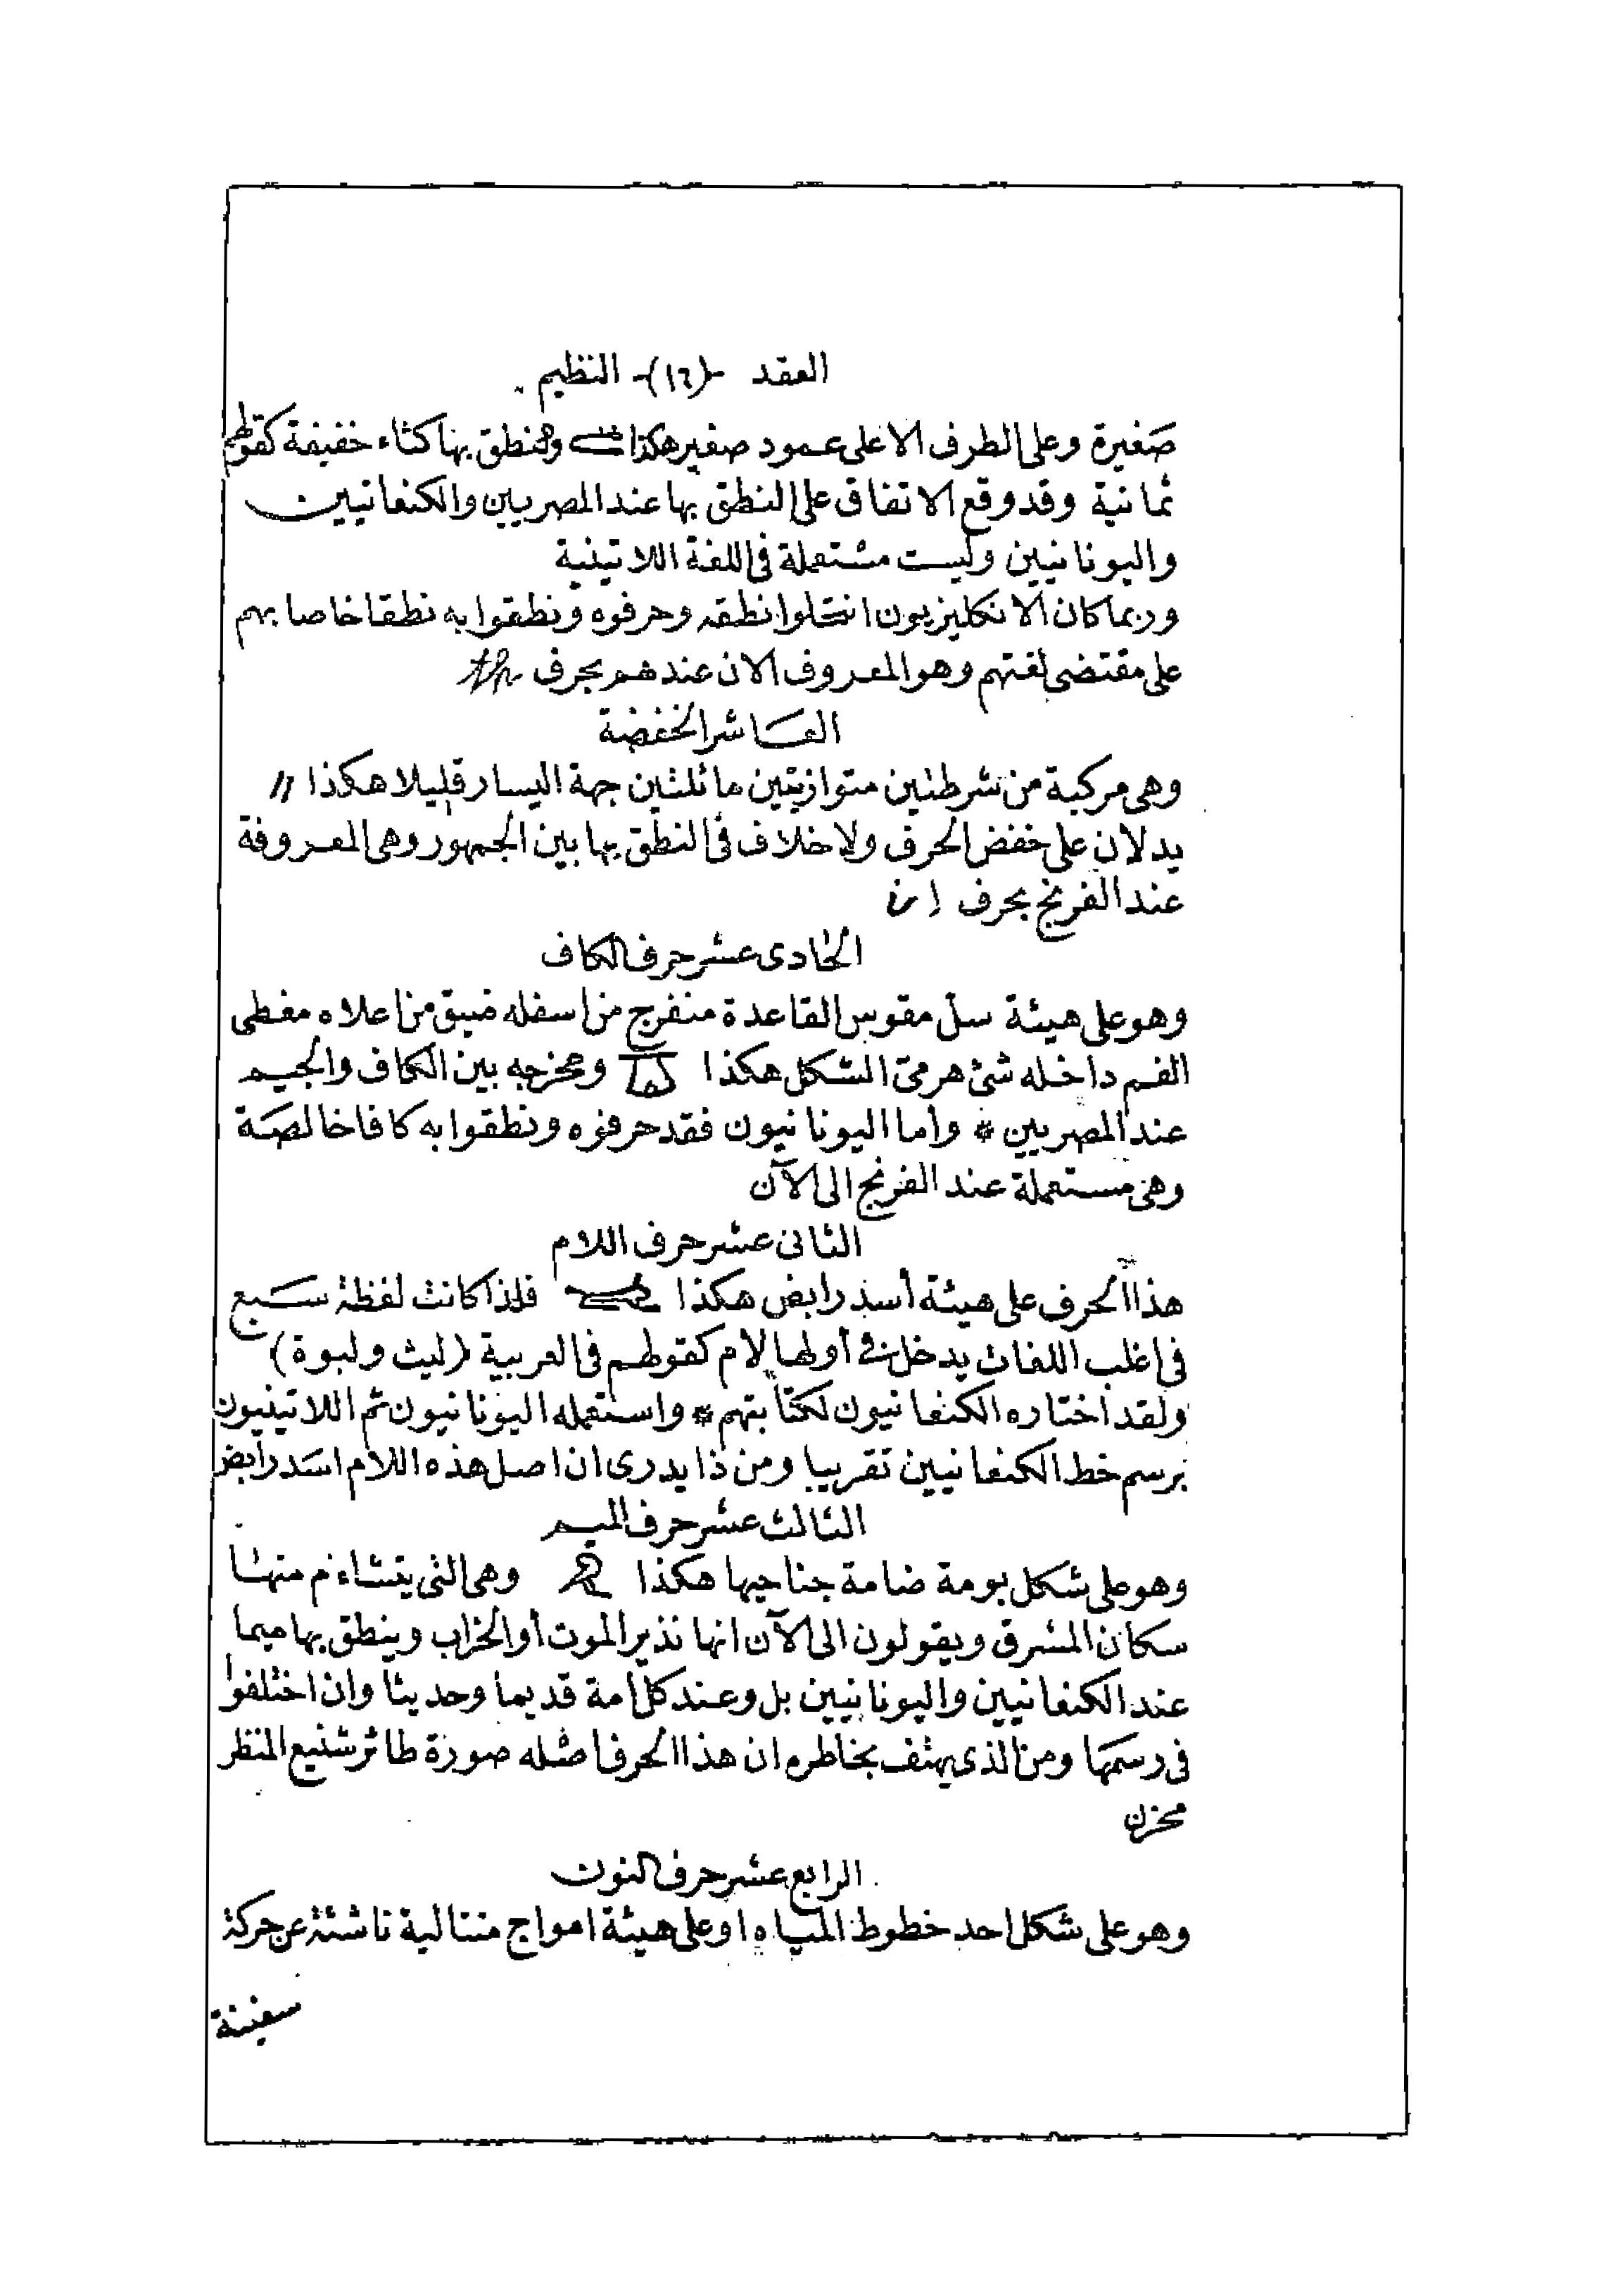 العقد -(١٦)- النظيم
صغيرة وعلى الطرف الاعلى عمود صغير هكذا وينطق بها كثاء خفيفة كقولهم
ثمانية وقد وقع الاتفاق على النطق بها عند المصريين والكنعانيين
واليونانيين وليست مشتعملة فى اللغة اللاتينية
وربما كان الانكليزيون انتحلوا نطقه وحرفوه ونطقوا به نطقا خاصا بهم
على مقتضى لغتهم وهو المعروف الان عندهم بحرف th
العاشر الخفضة
وهى مركبة من شرطتين متوازيتين مائلتين جهة اليسار قليلا هكذا \\
يدلان على خفض الحرف ولا خلاف فى النطق بها بين الجمهور وهى المعروفة
عند الفرنج بحرف
الحادى عشر حرف الكاف
وهو على هيئة سل مقوس القاعدة منفرج من اسفله ضيق من اعلاه مغطى
الفم داخله شئ هرمى الشكل هكذا ومخرجه بين الكاف والجيم
عند المصريين * وأما اليونانيون فقد حرفوه ونطقوا به كافا خالصة
وهى مستعملة عند الفرنج الى الآن
الثانى عشر حرف اللام
هذا الحرف على هيئة أسد رابض هكذا فلذا كانت لفظة سبع
فى اغلب اللغات يدخل فى أولها لام كقولهم فى العربية (ليث ولبوة)
ولقد اختاره الكنعانيون لكتابتهم * واستعمله اليونانيون ثم اللاتينيون
برسم خط الكنعانيين تقريبا ومن ذا يدرى ان اصل هذه اللام اسد رابض
الثالث عشر حرف الميم
وهو على شكل بومة ضامة جناحيها هكذا وهى التى يتشاءم منها
سكان المشرق ويقولون الى الآن انها نذير الموت أو الخراب وينطق بها ميما
عند الكنعانيين واليونانيين بل وعند كل أمة قديما وحديثا وان اختلفوا
فى رسمها ومن الذى يهتف بخاطره ان هذا الحرف اصله صورة طائر شنيع المنظر
محزن
الرابع عشر حرف النون
وهو على شكل احد خطوط المياه او على هيئة امواج متتالية ناشئة عن حركة
سفينة